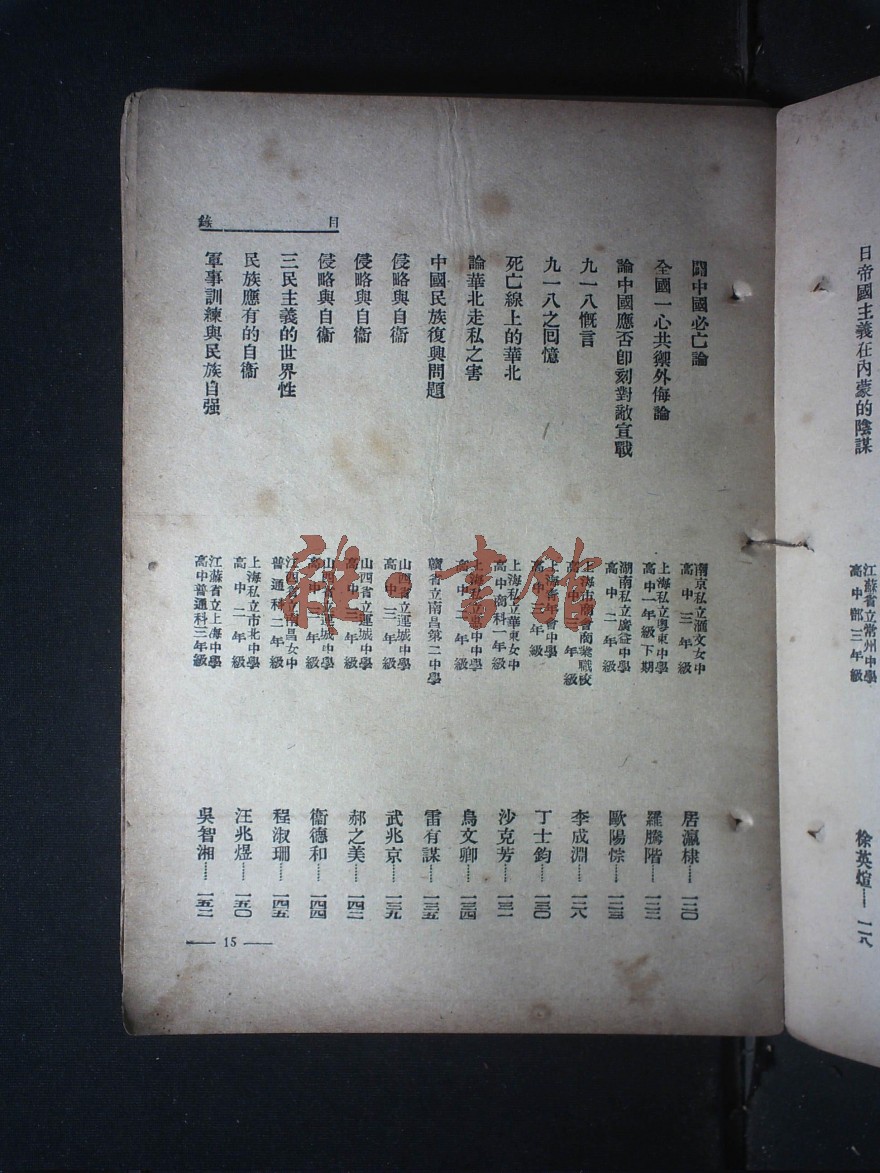 日帝國主義在內蒙的陰謀
江蘇省立常州中學
高中部三年級
徐英煊……一一八
目錄
闢中國必亡論
南京私立滙文女中
高中三年級
居瀛棣……一二〇
全國一心共禦外侮論
上海私立粵東中學
高中一年級下期
羅騰階……一二二
論中國應否卽刻對敵宣戰
湖南私立廣益中學
高中二年級
歐陽悰……一二三
九一八慨言
上海市商會商業職校
高中三年級
李成淵……一二八
九一八之回憶
上海青年會中學
高中三年級
丁士鈞……一三〇
死亡線上的華北
上海私立華東女中
高中商科一年級
沙克芳……一三一
論華北走私之害
高中二年級
鳥文卿……一三四
中國民族復興問題
贛省立南昌第二中學
雷有謀……一三五
侵略與自衞
山西省立運城中學
高中三年級
武兆京……一三九
侵略與自衞
山西省立運城中學
高中三年級
郝之美……一四二
侵略與自衞
山西省立運城中學
高中一年級
衞德和……一四四
三民主義的世界性
江西省立南昌女中
普通科二年級
程淑珊……一四五
民族應有的自衞
上海私立市北中學
高中二年級
汪兆煜……一五〇
軍事訓練與民族自强
江蘇省立上海中學
高中普通科三年級
吳智湘……一五二
— 15 —
雜·書館